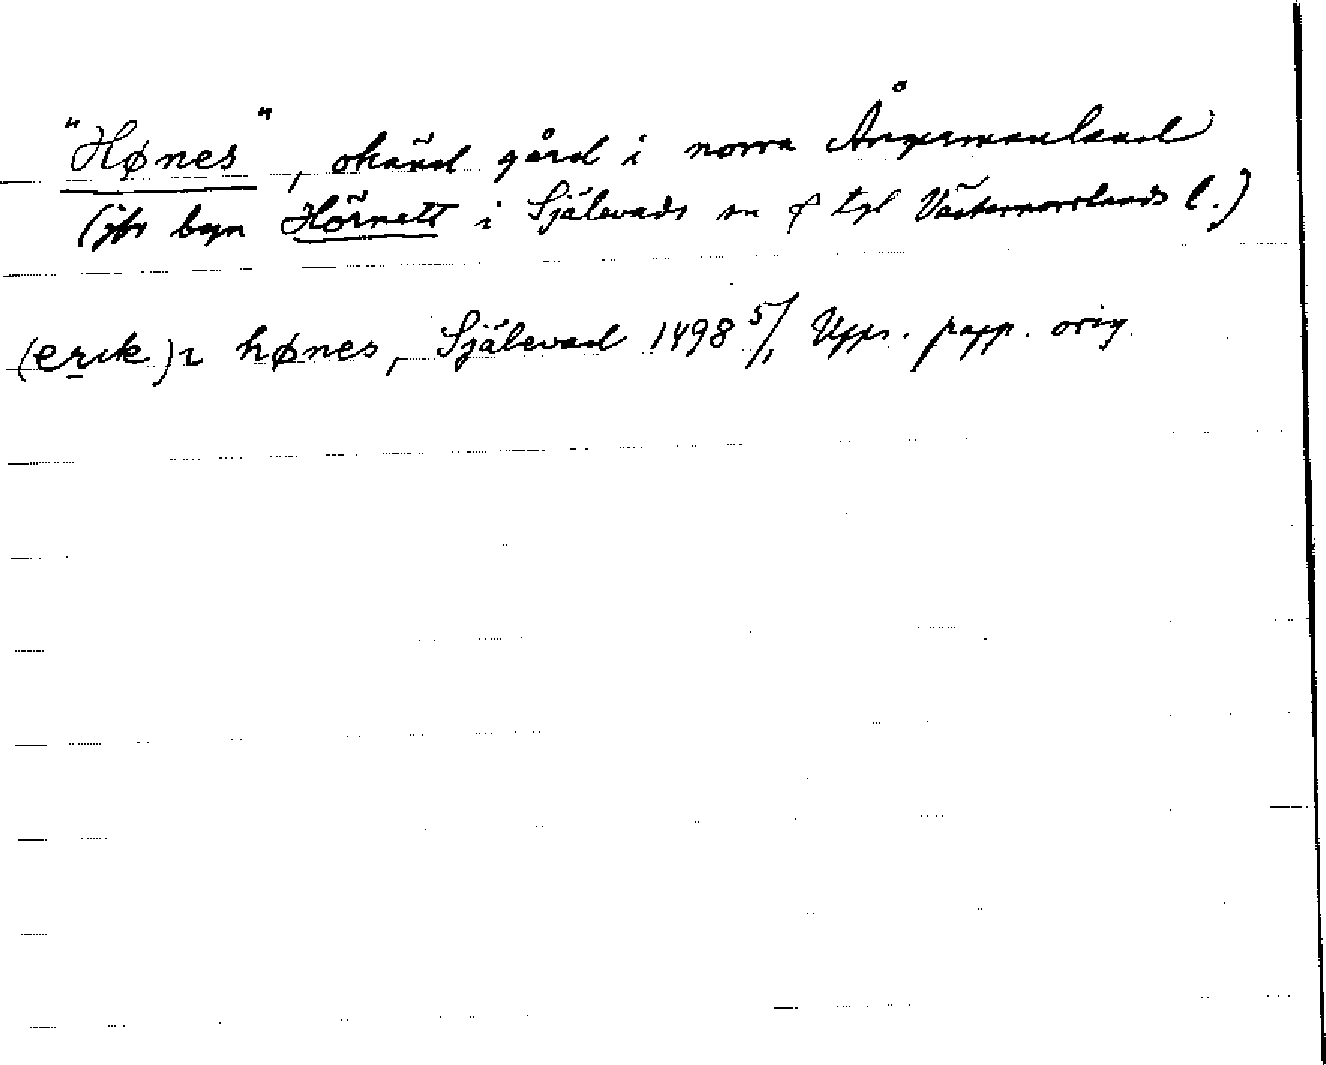 "Hønes", okänd gård i norra Ångermanland
(jfr byn Hörnett i Själevads sn o tgl Västernorrlands l.)
(erik) i hønes, Själevad 1498 5/1 Upps. papp. orig